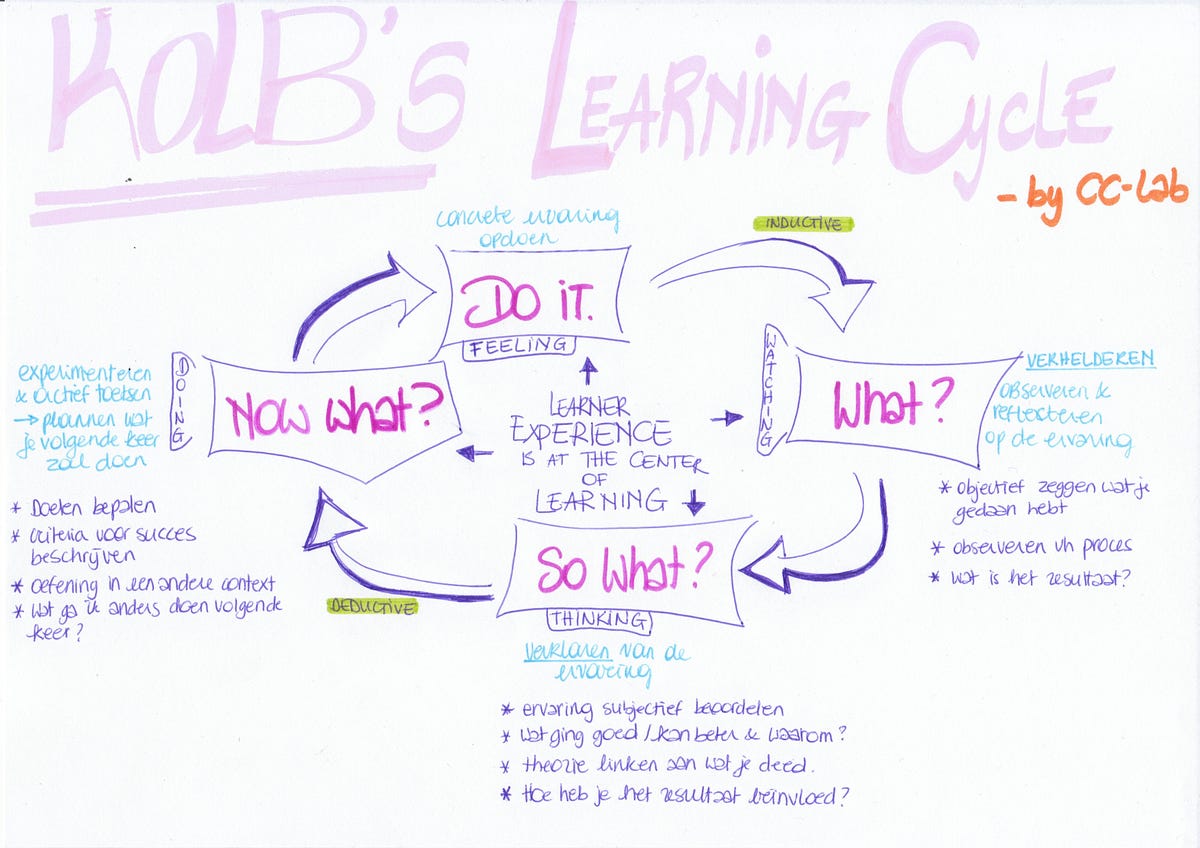 KOLB's LEARNING CYCLE
- by CC-Lab
concrete ervaring
opdoen
INDUCTIVE
DO iT.
FEELING
WATCHING
What?
VERHELDEREN
observeren &
reflecteren
op de ervaring
* objectief zeggen wat je
gedaan hebt
* observeren vh proces
* wat is het resultaat?
LEARNER
EXPERIENCE
IS AT THE CENTER
OF
LEARNING
experimenteren
& actief toetsen
→ plannen wat
je volgende keer
zal doen
DOING
Now what?
* Doelen bepalen
* criteria voor succes
beschrijven
* oefening in een andere context
* wat ga ik anders doen volgende
keer?
DEDUCTIVE
So What?
THINKING
verklaren van de
ervaring
* ervaring subjectief beoordelen
* wat ging goed / kan beter & waarom?
* theorie linken aan wat je deed.
* Hoe heb je het resultaat beïnvloed?